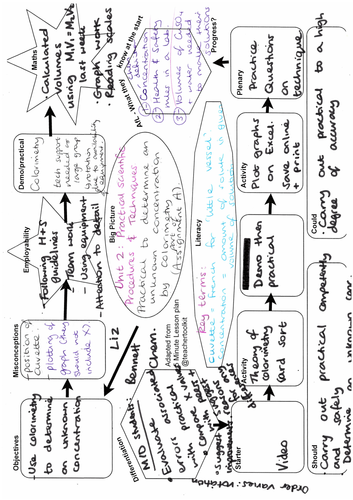 Objectives
- Use colorimetry
to determine
an unknown
concentration
Misconceptions
- position of
cuvette
- plotting of
graph (they
should not
include X)
Employability
- Following H+S
guidelines
- Team work
- Using equipment
- Attention to detail
Demo/practical
Colorimetry
tech support
needed as
large group
+ rotation
due to
equipment
Maths
- Calculated
volumes
using M1V1 = M2V2
last week
- Graph work
- Reading scales
Liz
Bennett
Big Picture
Unit 2: Practical Scientific
Procedures & Techniques
Practical to determine an
unknown concentration
by colorimetry
(Assignment A).
AfL - What they know at the start
① Concentration
definition
② Health & Safety
③ Volumes of CuSO4
+ water needed
to make different
solutions
Progress?
Adapted from
Minute Lesson plan
@teachertoolkit
Differentiation
M/D students:
- Evaluate associated
errors
Literacy
Key terms:
Cuvette = French for 'little vessel'
Concentration = amount of value in given
volume of
Starter
Video
Activity
Theory of
colorimetry
card sort
Activity
Demo then
practical
Activity
Plot graphs
on Excel.
Save online
+ print
Plenary
Practice
Questions
on
technique
Should
- Carry out practical competently
and safely
- Determine unknown conc.
Could
- Carry out practical to a high
degree of accuracy
Order varies: rotation